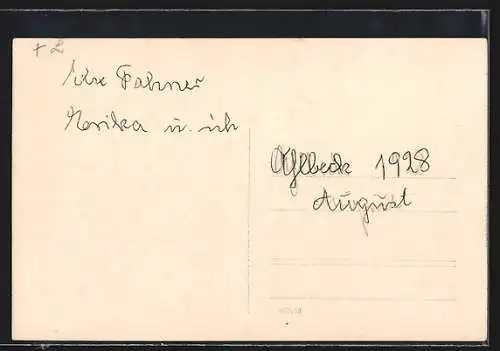 Fahner
Marika u. ich
Ahlbeck 1928
August